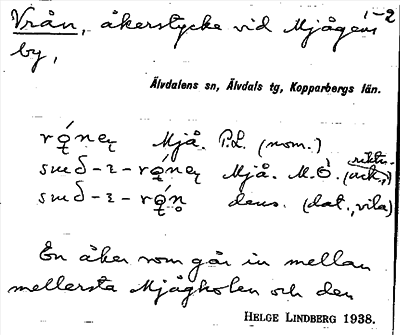 1-2
Vrån, åkerstycke vid Mjågens
by,
Älvdalens sn, Älvdals tg, Kopparbergs län.
Mjå. P.L. (nom.)
Mjå. M.O. (ack.)
dens. (dat., vila)
En åker som går in mellan
mellersta Mjågholen och den
HELGE LINDBERG 1938.